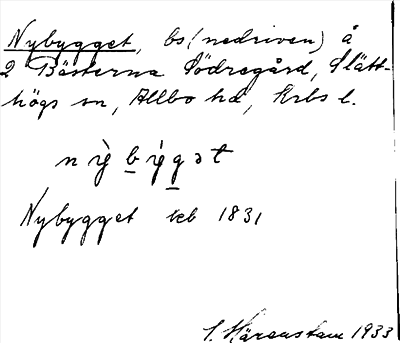 Nybygget, bs (nedriven) å
2 Bästerna Södregård, Slätt-
högs sn, Allbo hd, Krbs l.
n y̆̀ b y̆́ g ə t
Nybygget kb 1831
S. Härenstam 1933